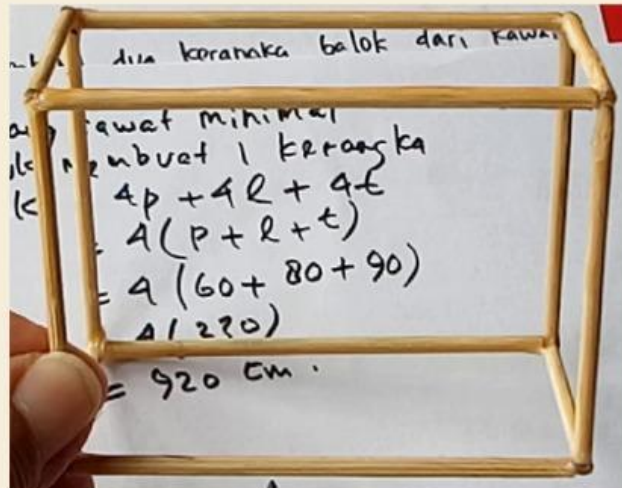 dua kerangka balok dari kawat
kawat minimal
membuat 1 kerangka
4p + 4l + 4t
= 4(p + l + t)
= 4(60 + 80 + 90)
4(230)
= 920 cm.